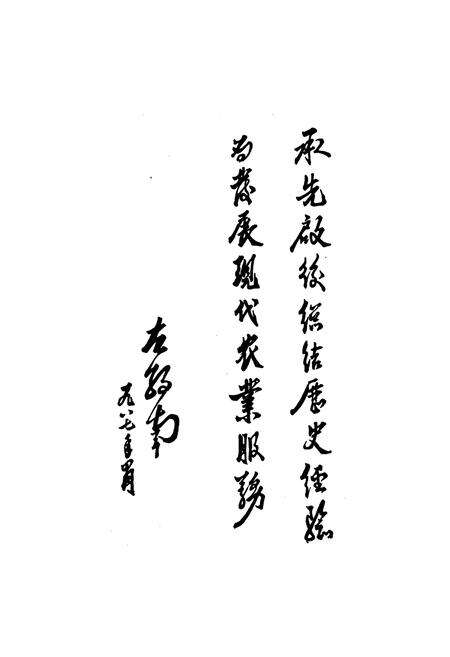 承先啟後總結歷史經驗
為發展現代農業服務
左
九八七年月